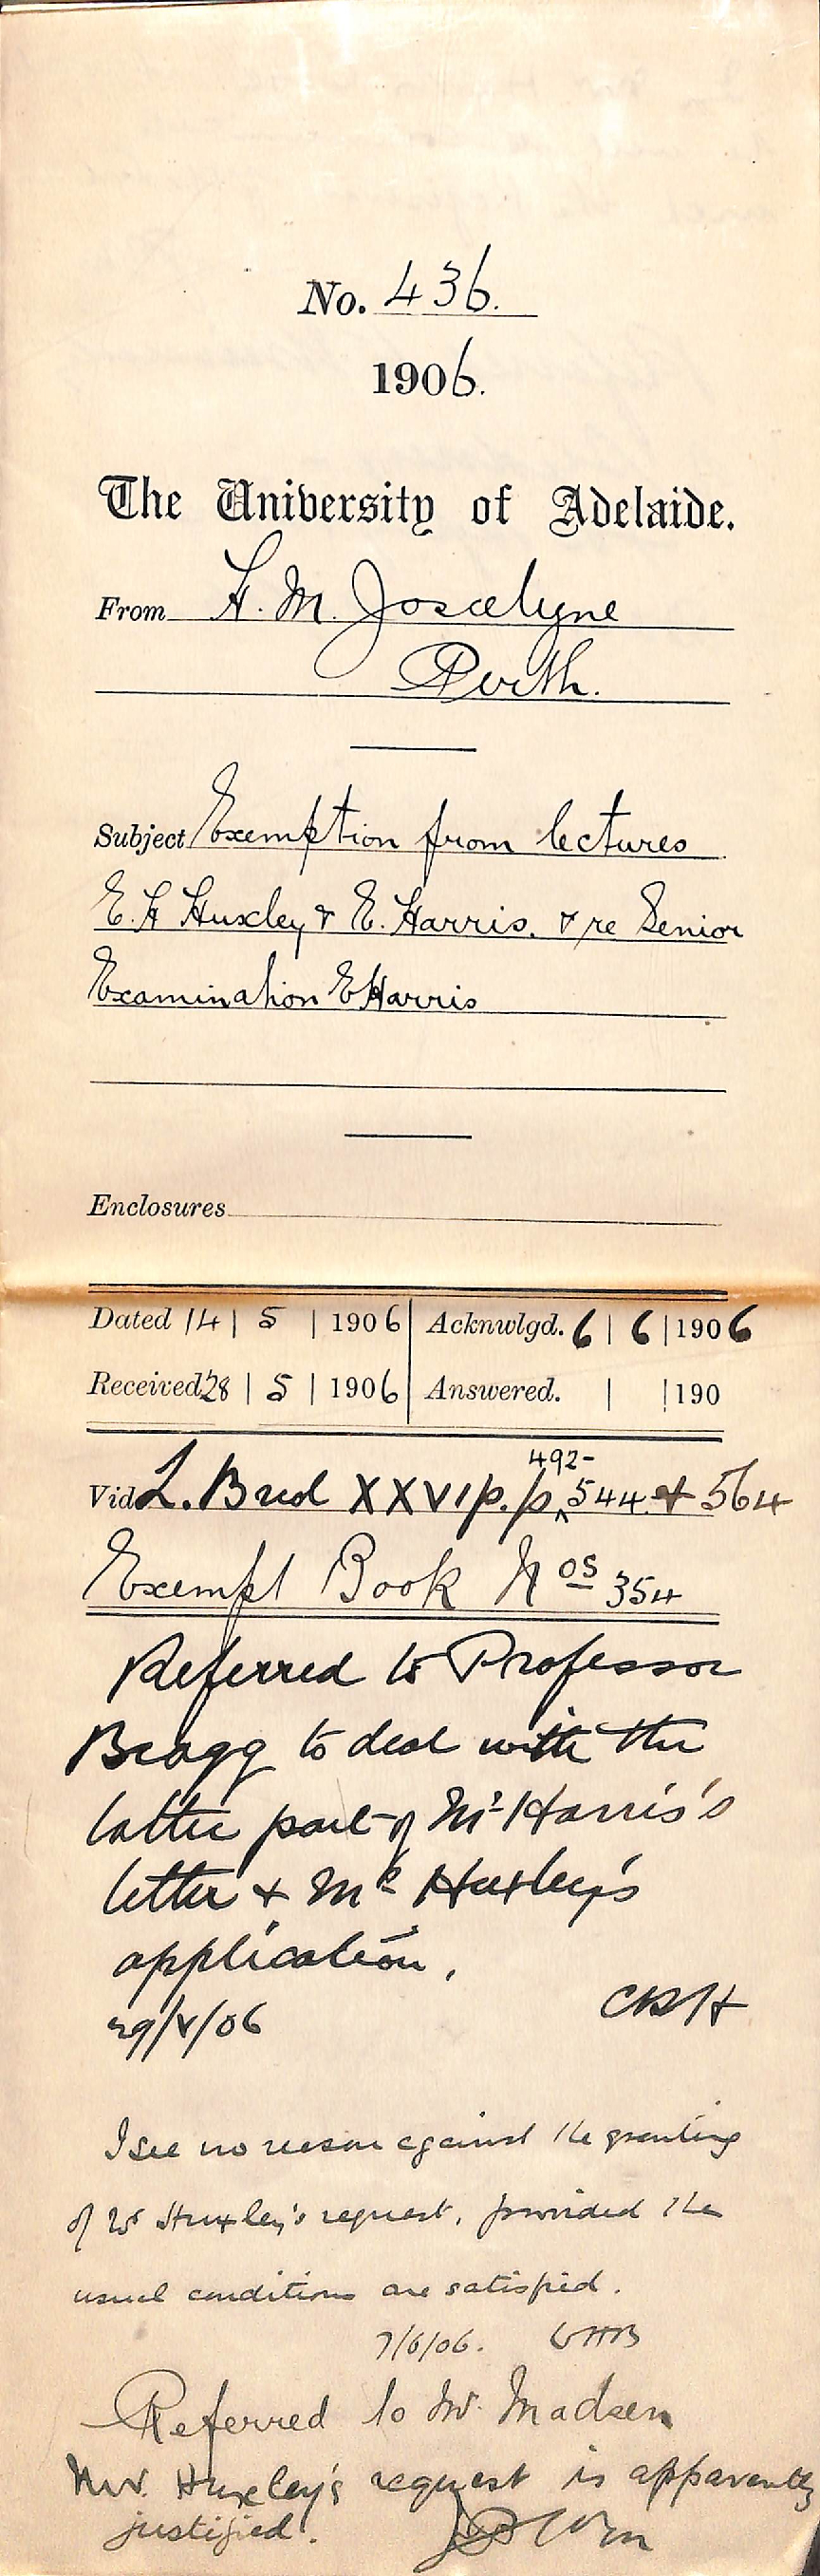 No. 436.
1906.
The University of Adelaide.
From H. M. Joscelyne
Perth.
Subject Exemption from lectures
E. H Huxley & E. Harris. & re Senior
Examination E Harris
Enclosures
Dated 14 | 5 | 1906 | Acknwlgd. 6 | 6 | 1906
Received 28 | 5 | 1906 | Answered. | | 190
492-
Vid L. Bred XXVI p. p 544 & 564
Exempt Book Nos 354
Referred to Professor
Bragg to deal with the
latter part of Mr Harris's
letter & Mr Huxley's
application.
29/V/06 CRH
I see no reason against the granting
of Mr Huxley's request, provided the
usual conditions are satisfied.
7/6/06. WHB
Referred to Mr. Madsen
Mr. Huxley's request is apparently
justified.